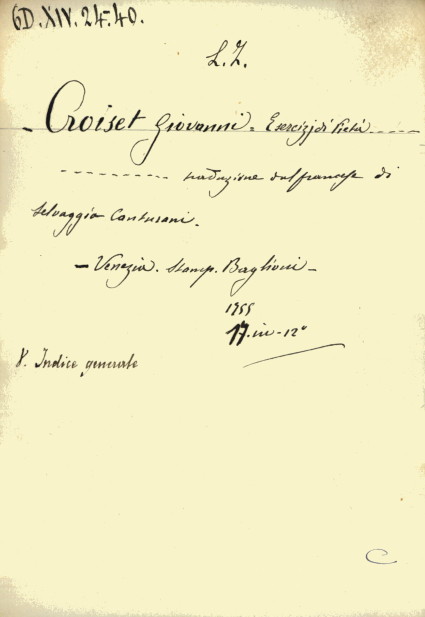 6D.XIV.24.40.
L.Z.
- Croiset Giovanni = Esercizj di Pietà ------
---------- traduzione dal francese di
Selvaggio Canturani.
- Venezia. Stamp. Baglioni -
1755
17.in-12°
V. Indice generale
C